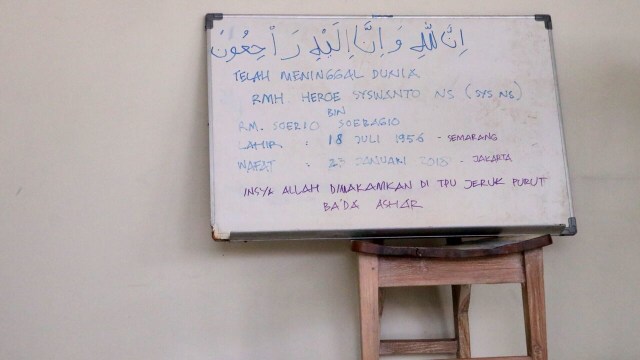 إِنَّا لِلَّٰهِ وَإِنَّا إِلَيْهِ رَاجِعُوْنَ
TELAH MENINGGAL DUNIA
RMH. HEROE SYSWANTO NS (SYS NS)
BIN
RM. SOERIO SOEBAGIO
LAHIR : 18 JULI 1956 - SEMARANG
WAFAT : 23 JANUARI 2018 - JAKARTA
INSYA ALLAH DIMAKAMKAN DI TPU JERUK PURUT
BA'DA ASHAR